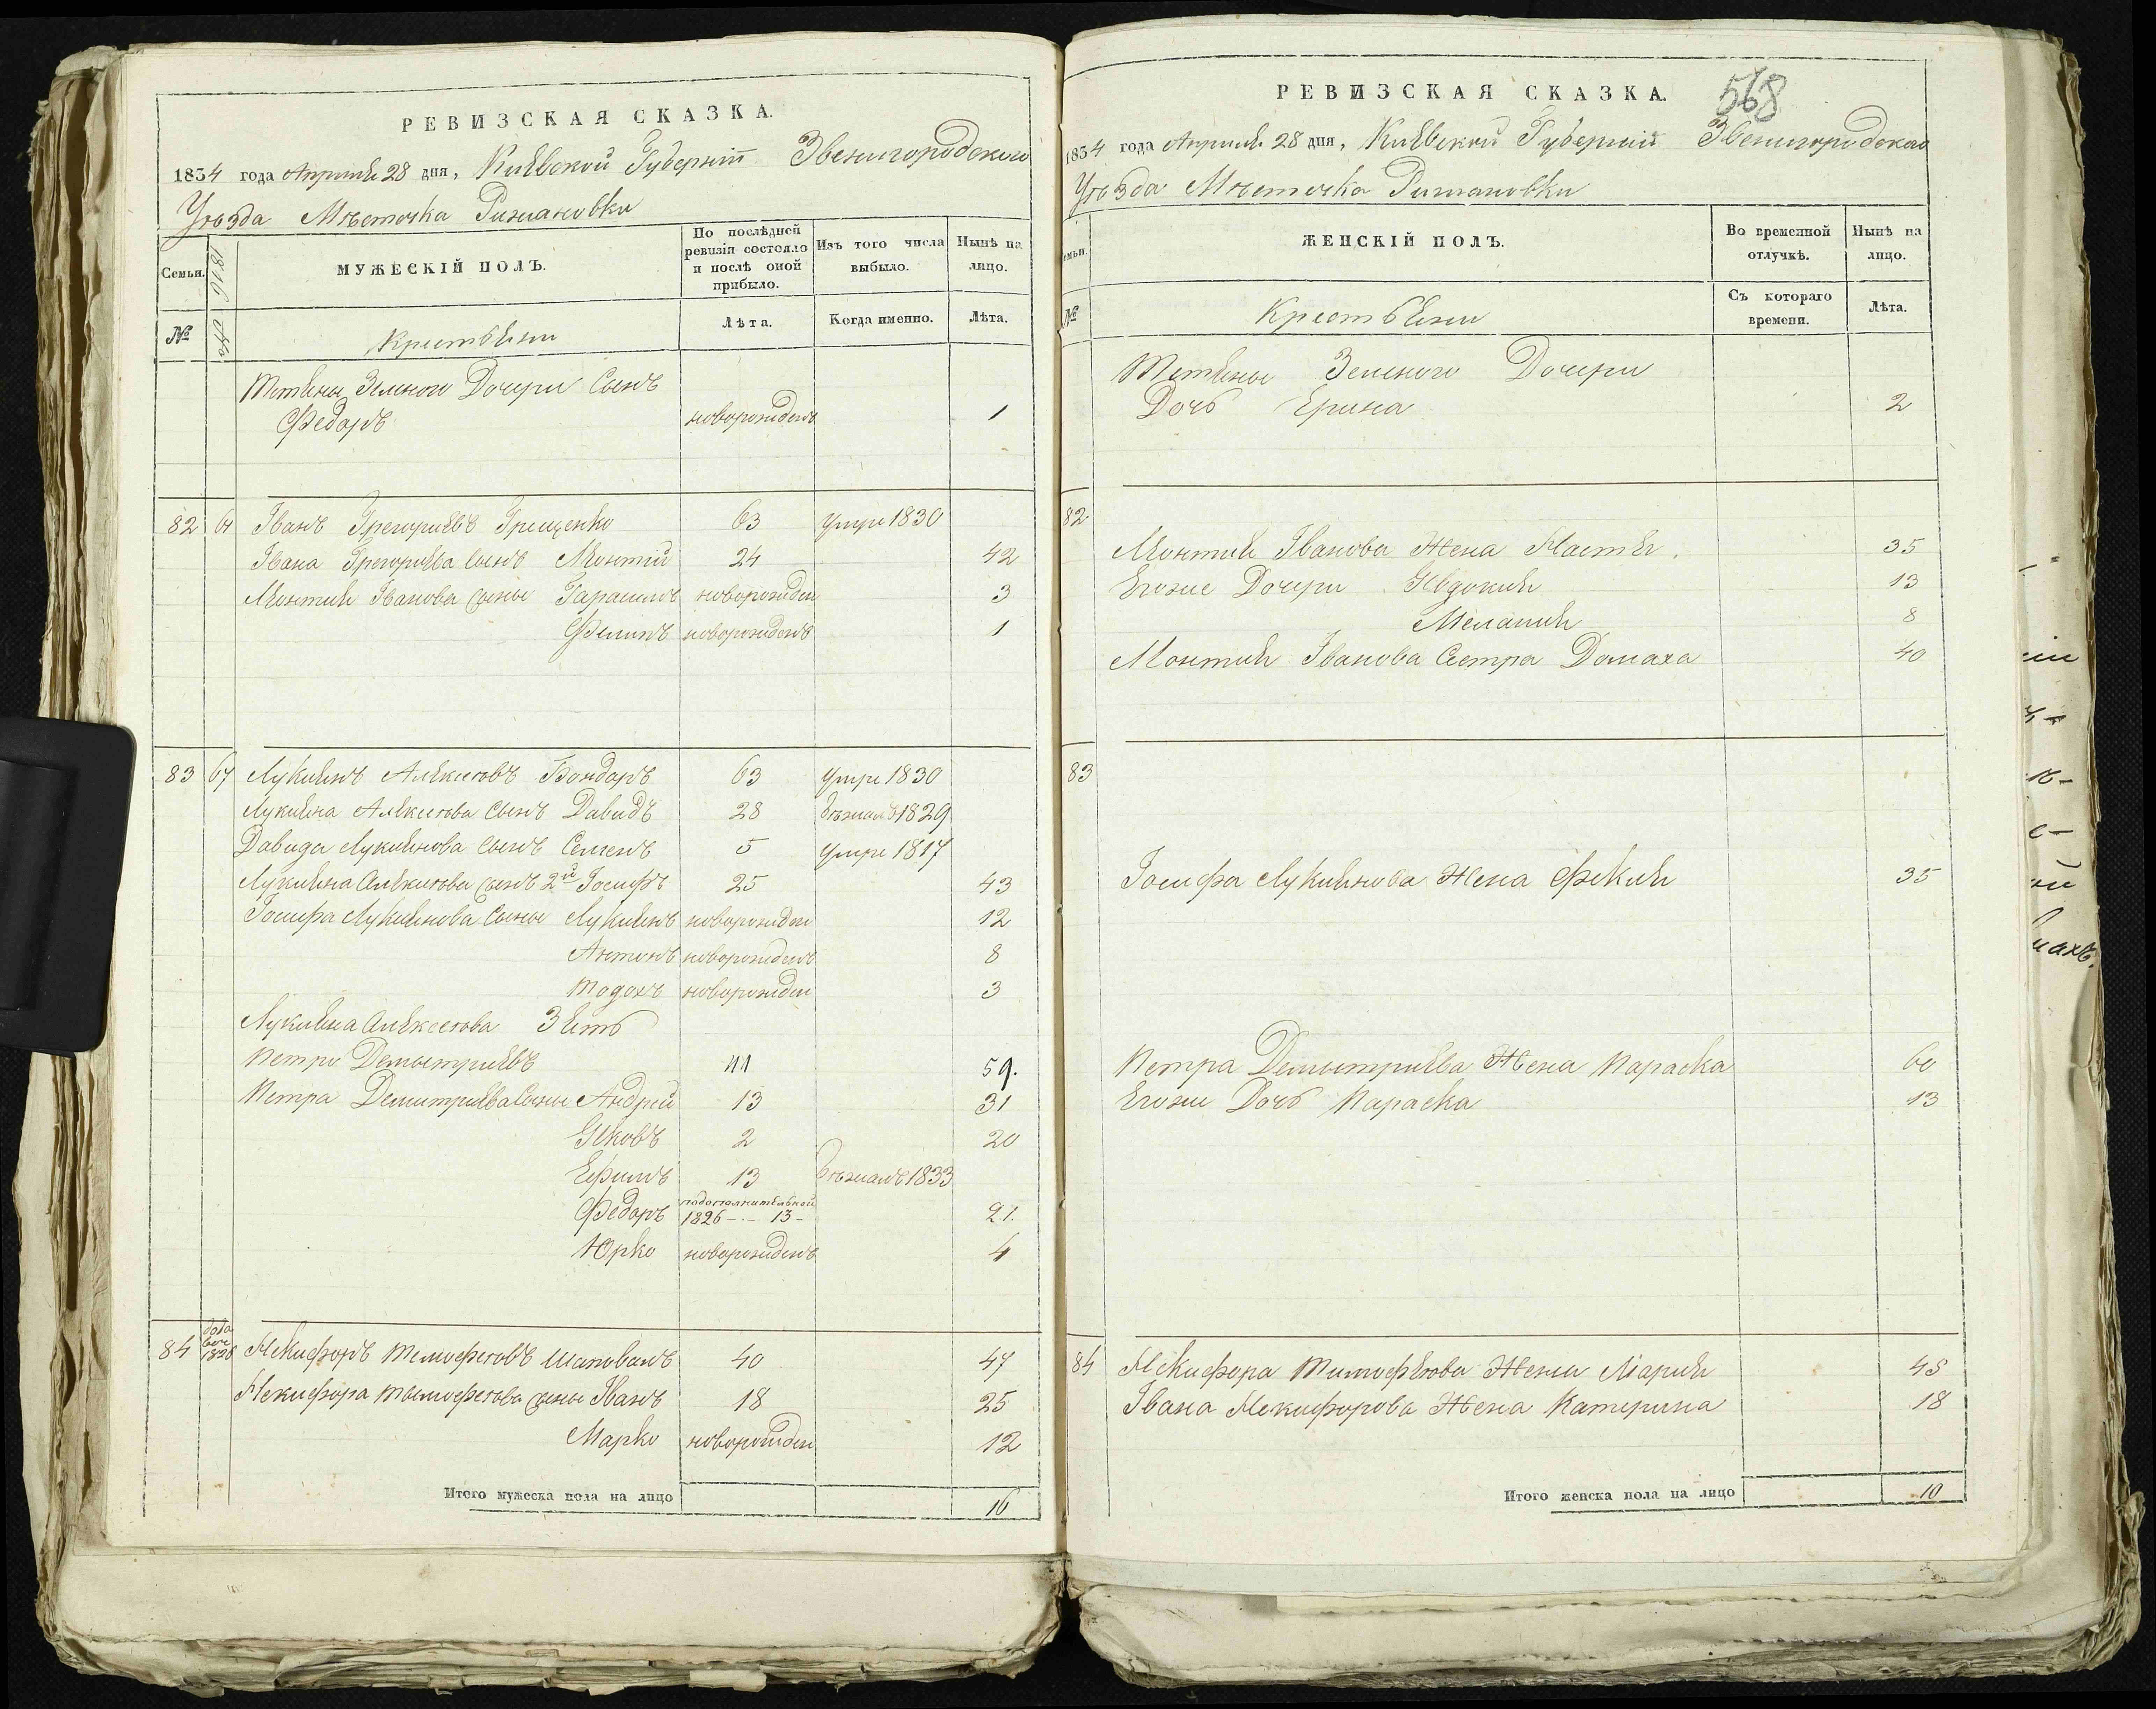 РЕВИЗСКАЯ СКАЗКА.
1834 года Апреля 28 дня, Киевской Губерніи Звенигородского
Уѣзда Мѣстечка Рижановки
Семьи.
1816
МУЖЕСКІЙ ПОЛЪ.
По послѣдней ревизіи состояло и послѣ оной прибыло.
Изъ того числа выбыло.
Нынѣ на лицо.
№
№
Крестьяни
Лѣта.
Когда именно.
Лѣта.
Зеленого Дочери Сынъ
Федоръ новорожденъ 1
82 61 Іванъ Грегориевъ Грищенко 63 умре 1830
Івана Грегориева сынъ Леонтій 24 42
Леонтия Іванова сыны Гарасимъ новорожден 3
Филипъ новорожденъ 1
83 67 Лукиянъ Алексеевъ Бондаръ 63 умре 1830
Лукияна Алексеева сынъ Давидъ 28 бѣжалъ 1829
Давида Лукиянова сынъ Семенъ 5 умре 1817
Лукияна Алексеева сынъ 2й Іосифъ 25 43
Іосифа Лукиянова сыны Лукиянъ новорожден 12
Антонъ новорожденъ 8
Тодохъ новорожден 3
Лукияна Алексеева Зять
Петро Демытриевъ 41 59.
Петра Демитриева сыны Андрей 13 31
Яковъ 2 20
Ефимъ 13 бѣжалъ 1833
Федоръ подополнителной
1826 - - 13 - 21.
Юрко новорожденъ 4
84 1826 Некифоръ Темофеевъ Шаповалъ 40 47
Некифора Тымофеева сыны Іванъ 18 25
Марко новорожден 12
Итого мужеска пола на лицо 16
РЕВИЗСКАЯ СКАЗКА.
568
1834 года Апреля 28 дня, Киевской Губерніи Звенигородского
Уѣзда Мѣстечка Рижановки
Семьи.
ЖЕНСКІЙ ПОЛЪ.
Во временной отлучкѣ.
Нынѣ на лицо.
№
Крестьяни
Съ котораго времени.
Лѣта.
Зеленого Дочери
Дочь Ерина 2
82
Леонтия Іванова Жена Настя. 35
Егоже Дочери Явдокия 13
Мелания 8
Леонтия Іванова Сестра Домаха 40
83
Іосифа Лукиянова Жена Фекия 35
Петра Демытриева Жена Параска 60
Егоже Дочь Параска 13
84 Некифора Тимофеева Жена Мария 45
Івана Некифорова Жена Катерина 18
Итого женска пола на лицо 10